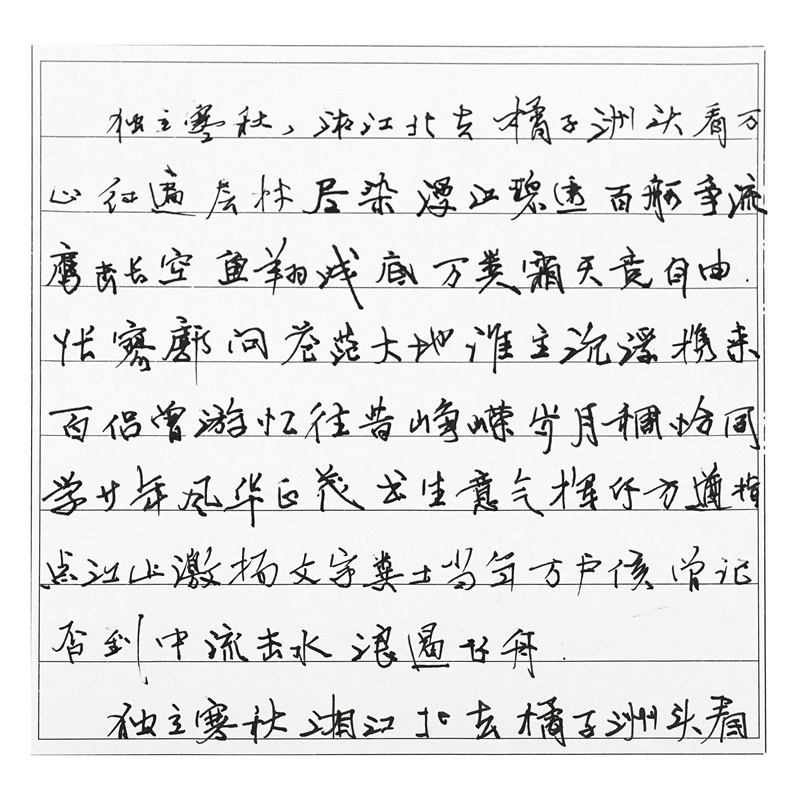 独立寒秋，湘江北去橘子洲头看万
山红遍层林尽染漫江碧透百舸争流
鹰击长空鱼翔浅底万类霜天竞自由.
怅寥廓问苍茫大地谁主沉浮携来
百侣曾游忆往昔峥嵘岁月稠恰同
学少年风华正茂书生意气挥斥方遒指
点江山激扬文字粪土当年万户侯曾记
否到中流击水浪遏飞舟.
独立寒秋湘江北去橘子洲头看